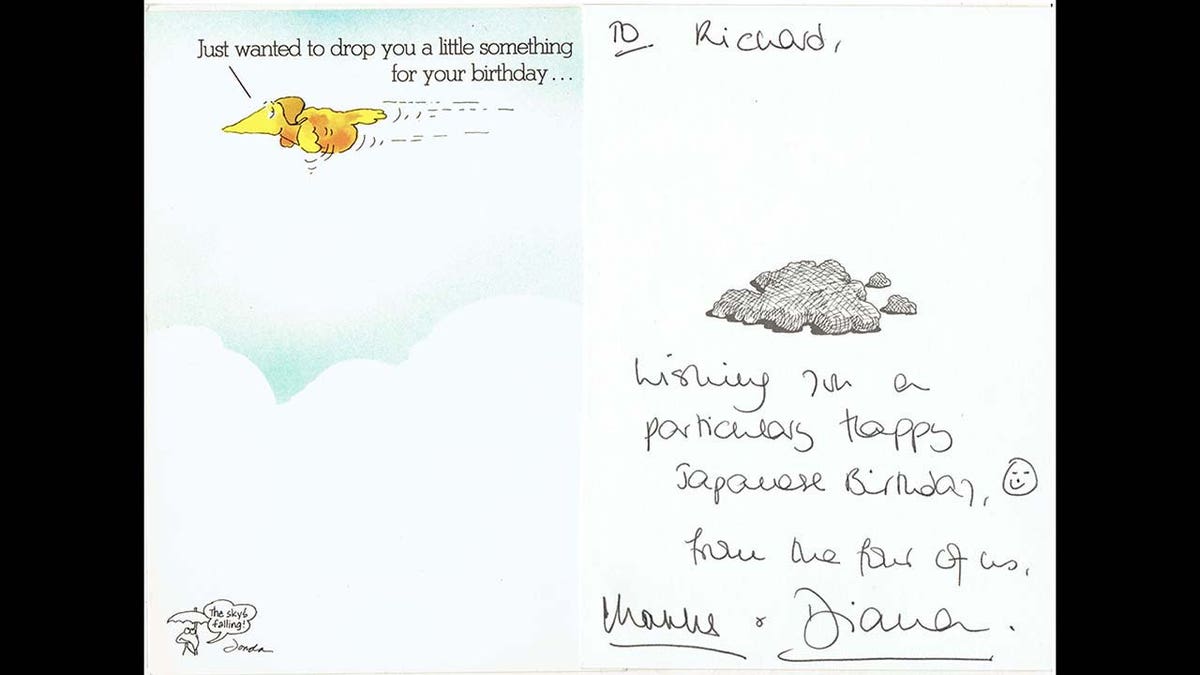 Just wanted to drop you a little something
for your birthday...
The sky's
falling!
To Richard,
Wishing you a
particulary Happy
Japanese Birthday,
from the four of us.
Charles & Diana.